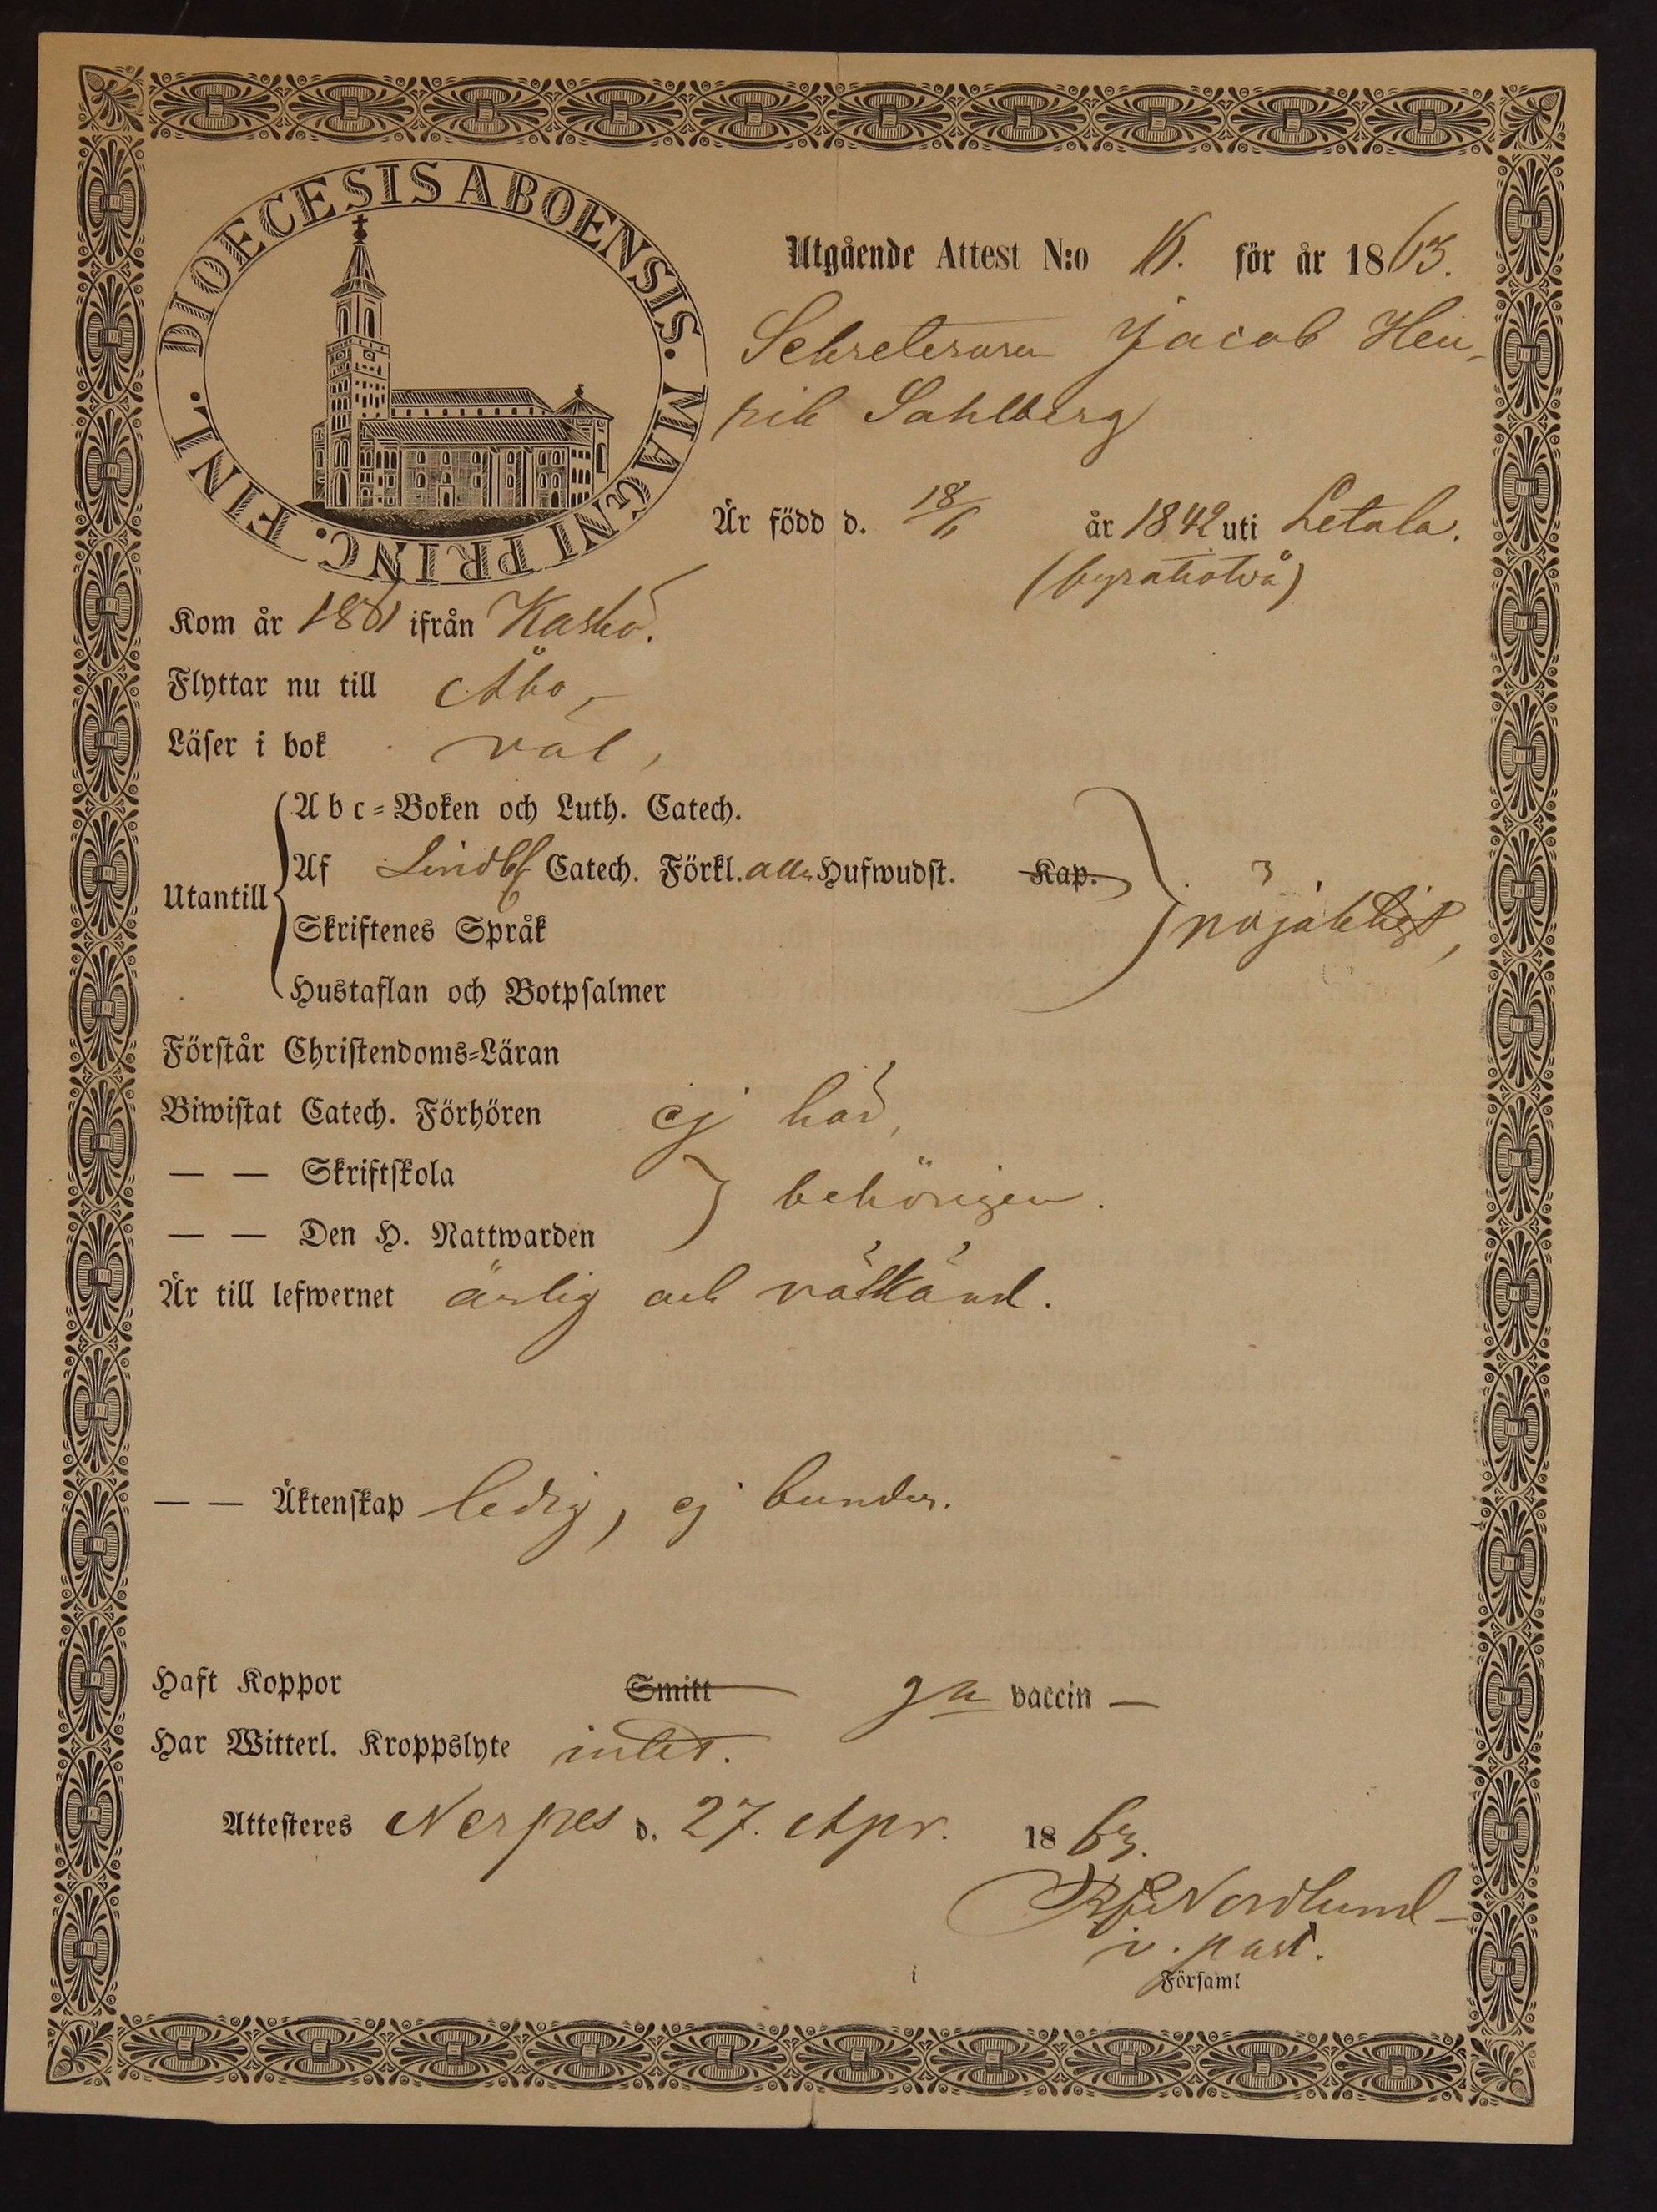 DIOECESIS ABOENSIS. MAGNI PRINC. FINL.
Utgående Attest N:o för år 1863.
Jacob Hen-
rik Sahlberg
Är född d. 18/6 år 1842 uti Letala.
(fyratiotvå)
Kom år 1861 ifrån Kaskö.
Flyttar nu till Åbo,
Läser i bok väl,
Utantill
Abc-Boken och Luth. Catech.
Af Catech. Förkl. alla Hufwudst. Kap.
nöjaktigt,
Skriftenes Språk
Hustaflan och Botpsalmer
Förstår Christendoms-Läran
Biwistat Catech. Förhören ej här,
— — Skriftskola
behörigen.
— — Den H. Nattwarden
Är till lefwernet ärlig och välkänd.
— — Äktenskap ledig, ej bunden.
Haft Koppor Smitt ga vaccin —
Har Witterl. Kroppslyte intet.
Attesteres Nerpes d. 27. Apr. 1863.
Nordlund
v. past.
i Församl